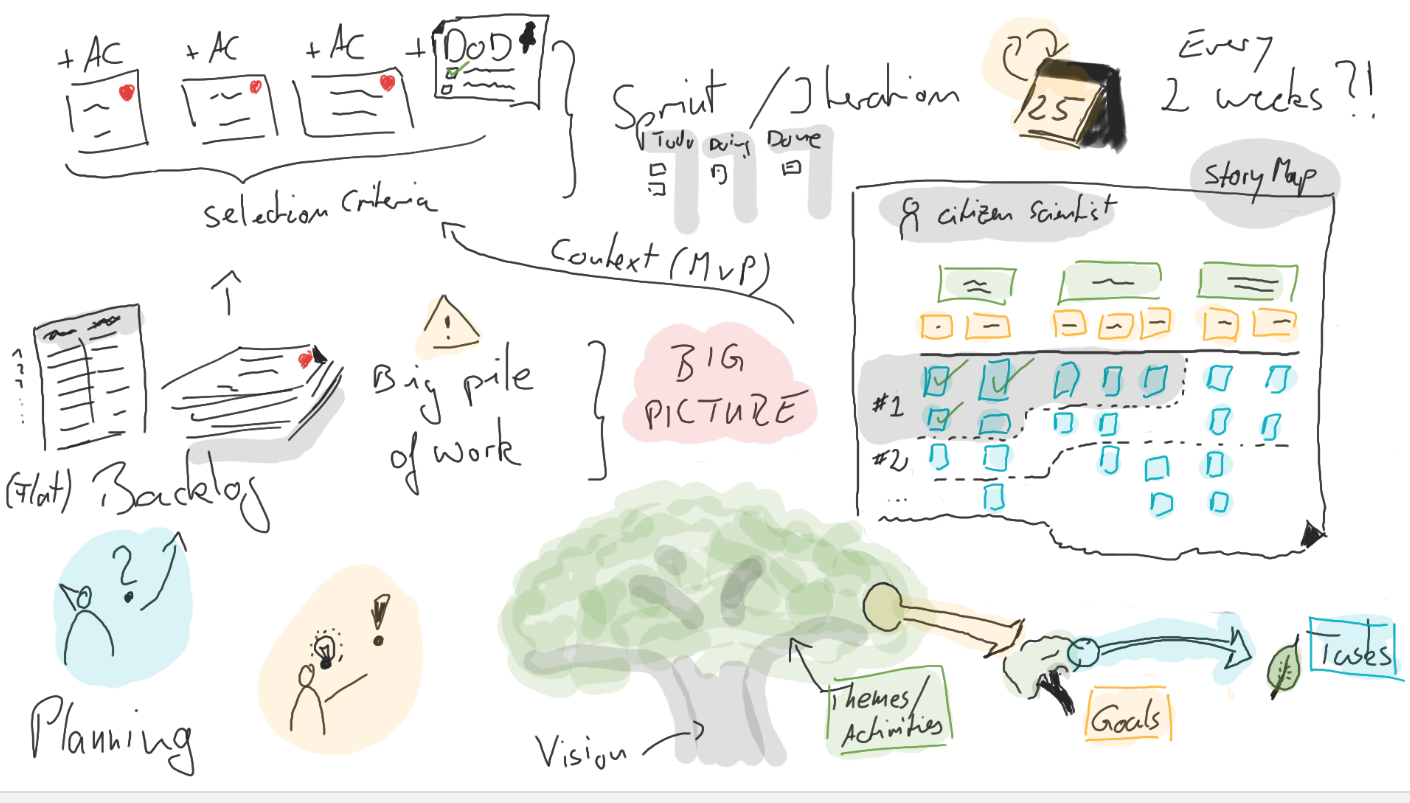 + AC
+ AC
+ AC
+ DOD
Sprint / Iteration
Todo
Doing
Done
25
Every
2 weeks ?!
Selection Criteria
Story Map
citizen scientist
Context (MVP)
!
Big pile
of work
BIG
PICTURE
#1
#2
...
(Flat) Backlog
?
!
Planning
Vision
Themes/
Activities
Goals
Tasks